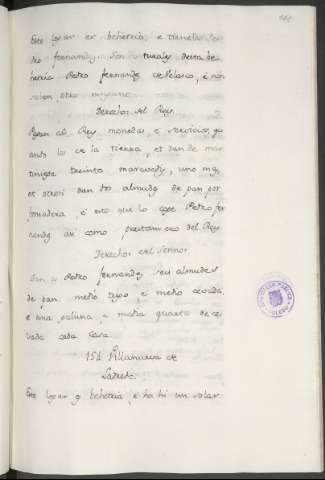 Este logar es behetria e tienela Pe
dro fernandez. Son turales desta be
hetria Pedro fernandez de Velasco, e non
saben otro ninguno.
Derechos del Rey.
Pagan al Rey monedas e servicios qu
ando los de la tierra, et dan de mar
tiniega treinta maravedis, uno mas,
et otrosi dan dos almudes de pan por
e esto que lo coge Pedro fer
nandez asi como prestamero del Rey
Derechos del Señor
Dan a Pedro fernandez seis almudes
de pan medio trigo e medio cevada,
e una gallina e media quarta de ce
vada cada casa.
151 Villanueva de
Este logar es behetria, e ha hi un solar
BIBLIOTECA PUBLICA
TOLEDO